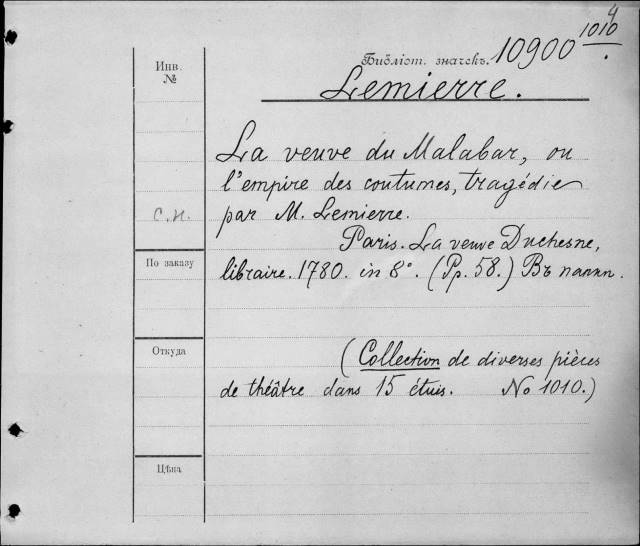 4
1010
Инв.
№
Библіот. значекъ. 10900
Lemierre.
La veuve du Malabar, ou
l'empire des coutumes, tragédie
С.Н.
par M. Lemierre.
Paris. La veuve Duchesne,
По заказу
libraire. 1780. in 8°. (Pp. 58.) Въ папкѣ.
Откуда
(Collection de diverses pièces
de théâtre dans 15 étuis. No 1010.)
Цѣна